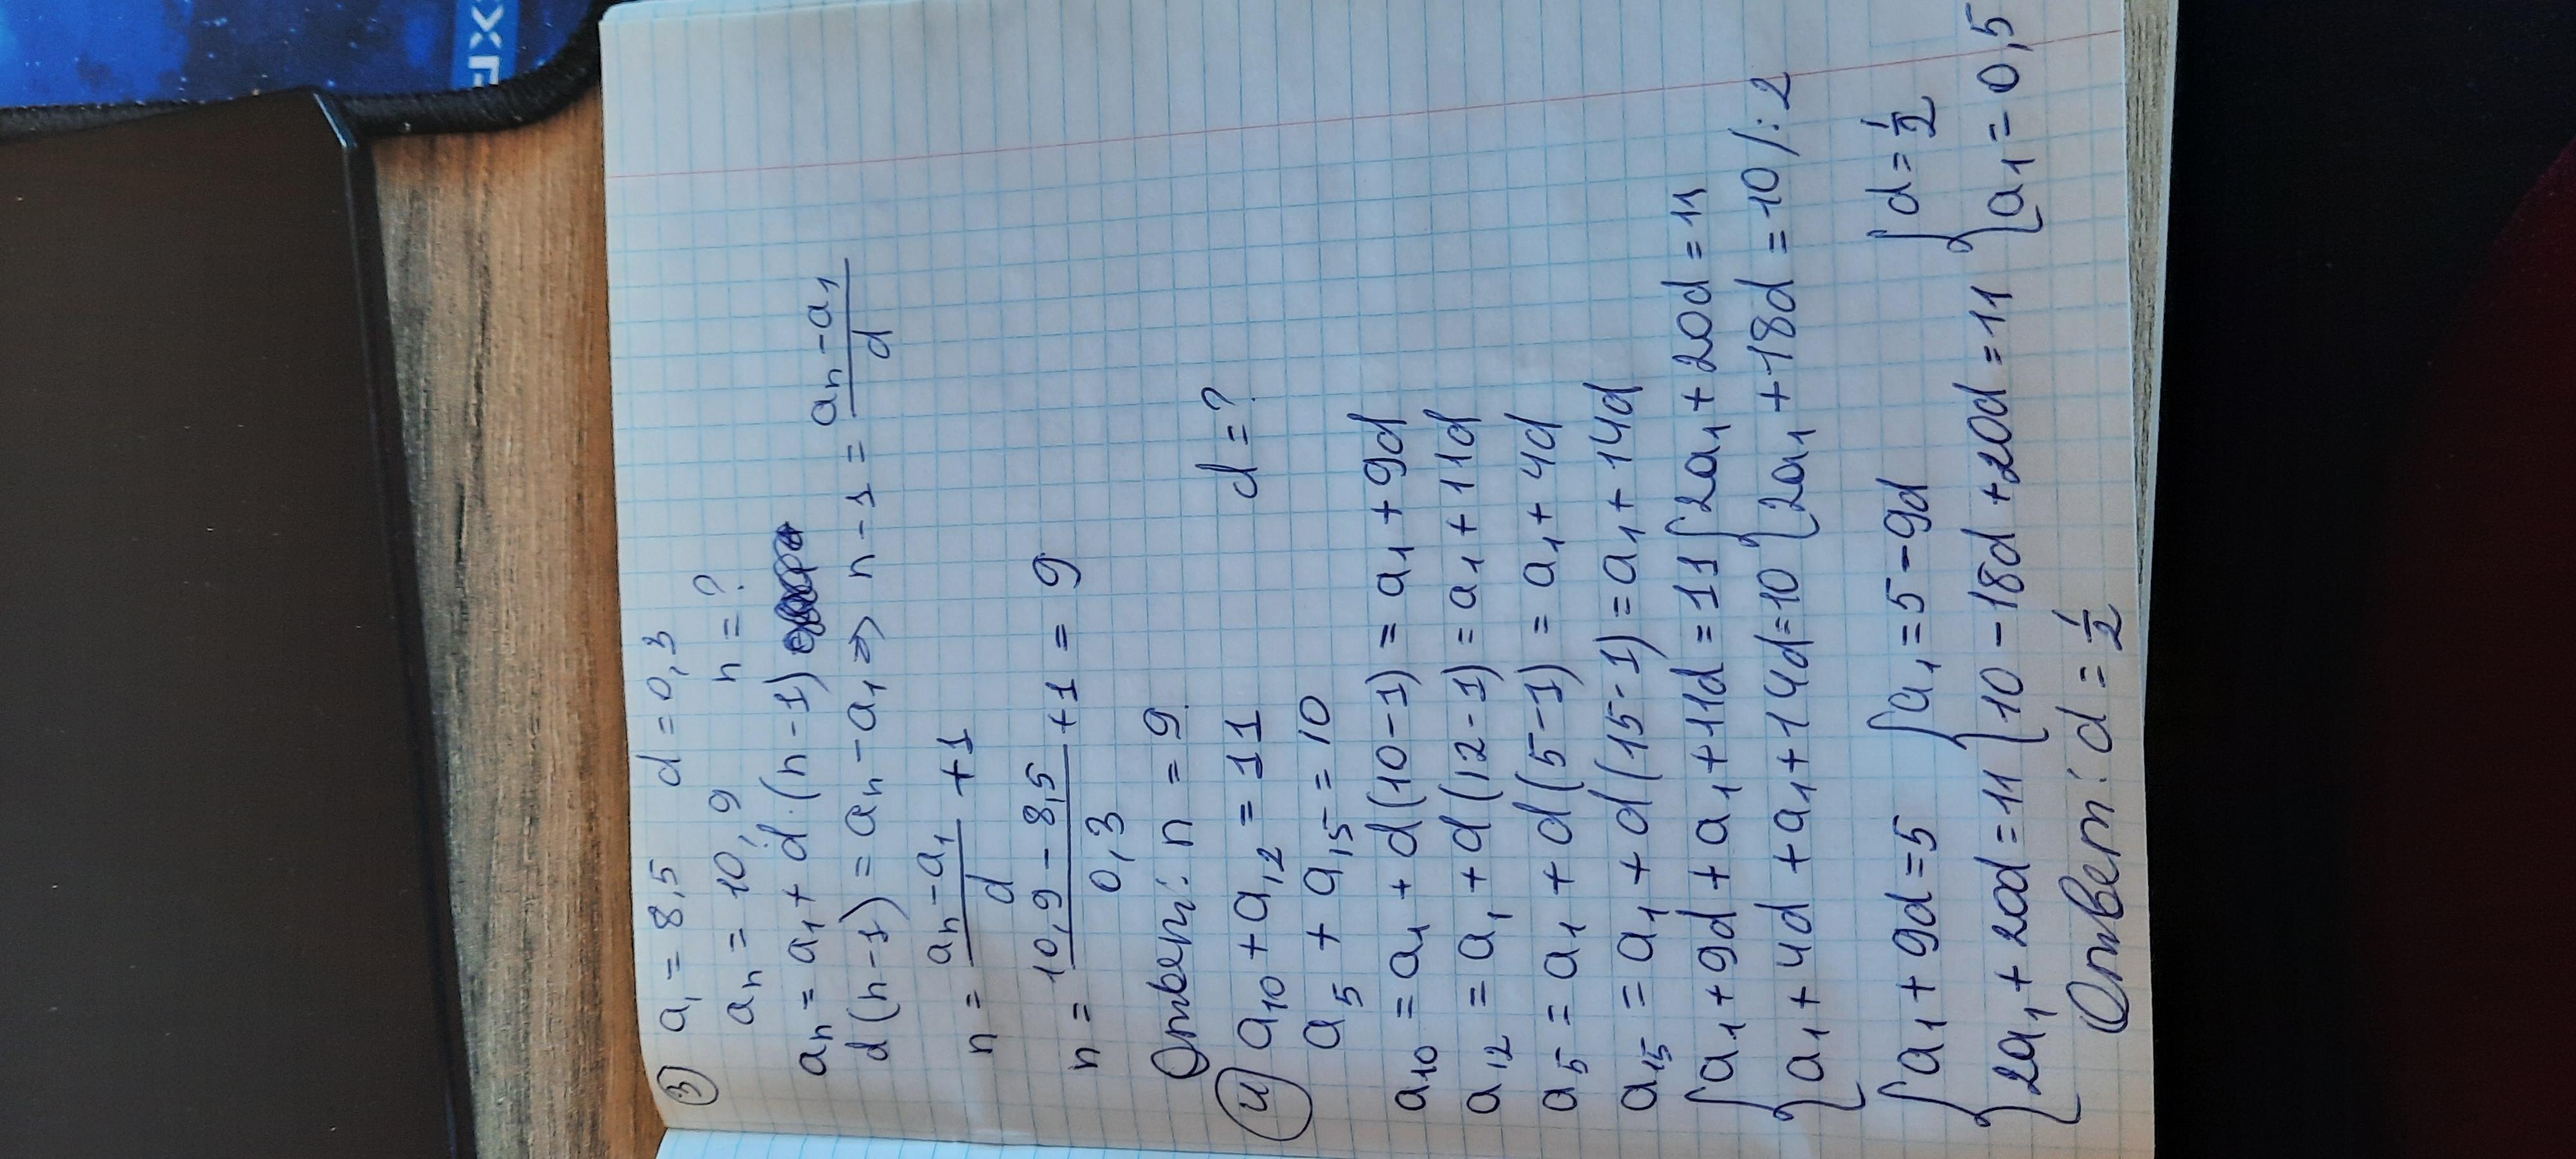 ③ a₁ = 8,5 d = 0,3
aₙ = 10,9 n = ?
aₙ = a₁ + d·(n-1)
d(n-1) = aₙ - a₁ => n - 1 = (aₙ - a₁)/d
n = (aₙ - a₁)/d + 1
n = (10,9 - 8,5)/0,3 + 1 = 9
Ответ: n = 9.
④ a₁₀ + a₁₂ = 11 d = ?
a₅ + a₁₅ = 10
a₁₀ = a₁ + d(10-1) = a₁ + 9d
a₁₂ = a₁ + d(12-1) = a₁ + 11d
a₅ = a₁ + d(5-1) = a₁ + 4d
a₁₅ = a₁ + d(15-1) = a₁ + 14d
{ a₁ + 9d + a₁ + 11d = 11 { 2a₁ + 20d = 11
{ a₁ + 4d + a₁ + 14d = 10 { 2a₁ + 18d = 10 /: 2
{ a₁ + 9d = 5 { a₁ = 5 - 9d { d = 1/2
{ 2a₁ + 20d = 11 { 10 - 18d + 20d = 11 { a₁ = 0,5
Ответ: d = 1/2